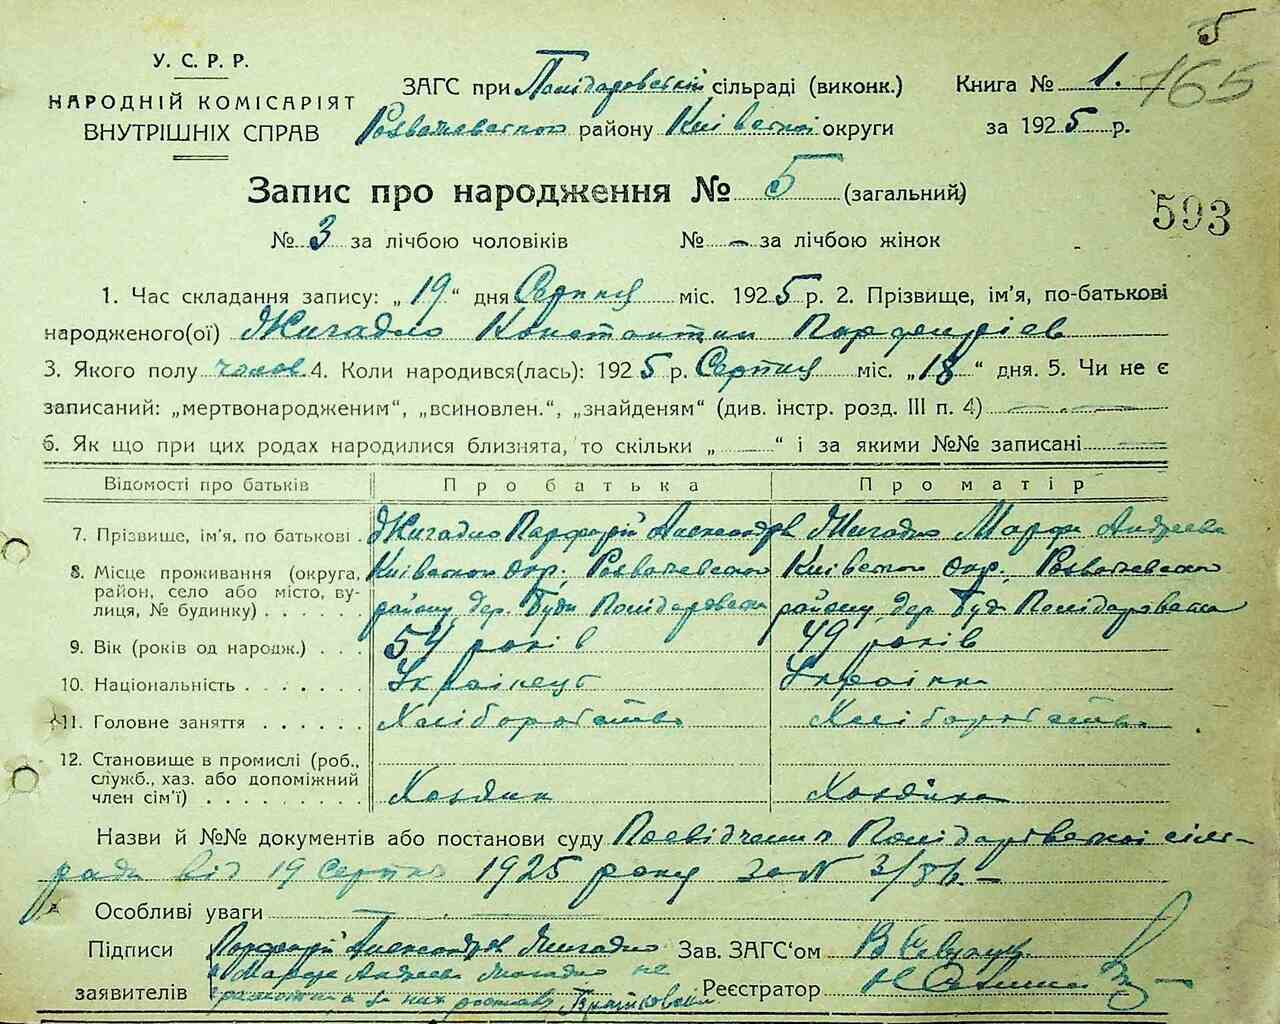 5
165
У. С. Р. Р.
НАРОДНІЙ КОМІСАРІЯТ
ВНУТРІШНІХ СПРАВ
ЗАГС при сільраді (виконк.)
району Київської округи
Книга № 1.
за 1925 р.
Запис про народження № 5 (загальний)
593
№ 3 за лічбою чоловіків № – за лічбою жінок
1. Час складання запису: „ 19 “ дня Серпня міс. 1925 р. 2. Прізвище, ім'я, по-батькові
народженого(ої) Жигадло Константин Парфенріев
3. Якого полу чолов 4. Коли народився(лась): 1925 р. Серпня міс. „ 18 “ дня. 5. Чи не є
записаний: „мертвонародженим“, „всиновлен.“, „знайденям“ (див. інстр. розд. III п. 4)
6. Як що при цих родах народилися близнята, то скільки „ “ і за якими №№ записані
Відомості про батьків Про батька Про матір
7. Прізвище, ім'я, по батькові . Жигадло Александрів Жигадло Марфа Андреева
8. Місце проживання (округа, Київской окр., Київской окр.,
район, село або місто, ву- району, дер. Буда району, дер. Буда
лиця, № будинку) . . . .
9. Вік (років од народж.) . . . 54 років 49 років
10. Національність . . . . . . . Українець Українка
11. Головне заняття . . . . . . Хліборобство Хліборобство
12. Становище в промислі (роб.,
служб., хаз. або допоміжний
член сім'ї) . . . . . . . . . Хозяин Хозяйка
Назви й №№ документів або постанови суду Посвідчення сіль-
ради від 19 серпня 1925 року за №
Особливі уваги
Підписи Александрів Жигадло Зав. ЗАГС'ом
Марфа Андреева Жигадло не
заявителів Реєстратор